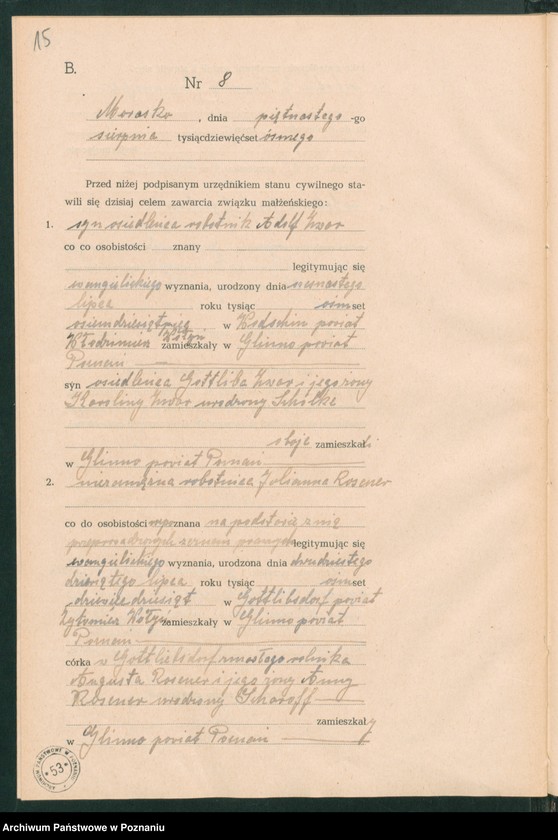 15
B.
Nr 8
Morasko, dnia piętnastego -go
sierpnia tysiącdziewięćset ósmego
Przed niżej podpisanym urzędnikiem stanu cywilnego sta-
wili się dzisiaj celem zawarcia związku małżeńskiego:
1. syn osiedleńca robotnik Adolf
co co osobistości znany
legitymując się
ewangielickiego wyznania, urodzony dnia
lipca roku tysiąc ośm set
w poviat
zamieszkały w Glinno poviat
Poznań
syn osiedleńca Gottliba i jego żony
Karoliny urodzony
oboje zamieszkali
w Glinno poviat Poznań
2. niezamężna robotnica Julianna Rosener
co do osobistości rozpoznana na podstawie z nią
legitymując się
ewangielickiego wyznania, urodzona dnia dwudziestego
dziewiątego lipca roku tysiąc ośm set
w Gottlibsdorf poviat
zamieszkały w Glinno poviat
Poznań
córka w Gottlibsdorf zmarłego rolnika
Augusta Rosener i jego żony Anny
Rosener urodzony Scharoff
zamieszkały
w Glinno poviat Poznań
ARCHIWUM PAŃSTWOWE W POZNANIU
53
Archiwum Państwowe w Poznaniu